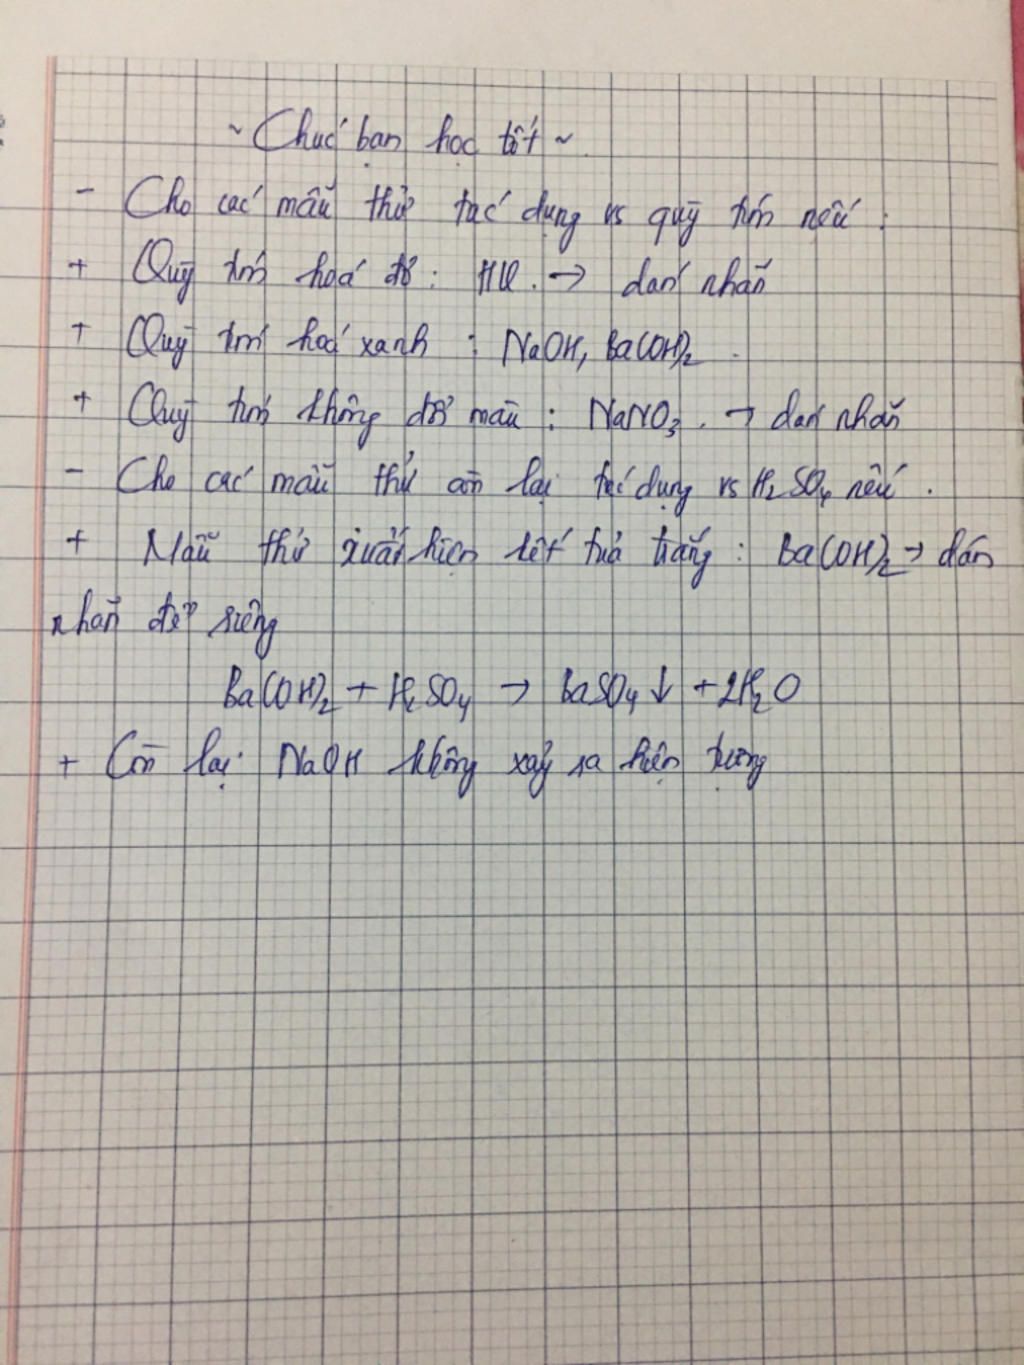 ~ Chúc bạn học tốt ~
- Cho các mẫu thử tác dụng vs quỳ tím nếu :
+ Quỳ tím hoá đỏ : HCl. → dán nhãn
+ Quỳ tím hoá xanh : NaOH, Ba(OH)₂.
+ Quỳ tím không đổi màu : NaNO₃. → dán nhãn
- Cho các mẫu thử còn lại tác dụng vs H₂SO₄ nếu.
+ Mẫu thử xuất hiện kết tủa trắng : Ba(OH)₂ → dán
nhãn để riêng
Ba(OH)₂ + H₂SO₄ → BaSO₄ ↓ + 2H₂O
+ Còn lại NaOH không xảy ra hiện tượng